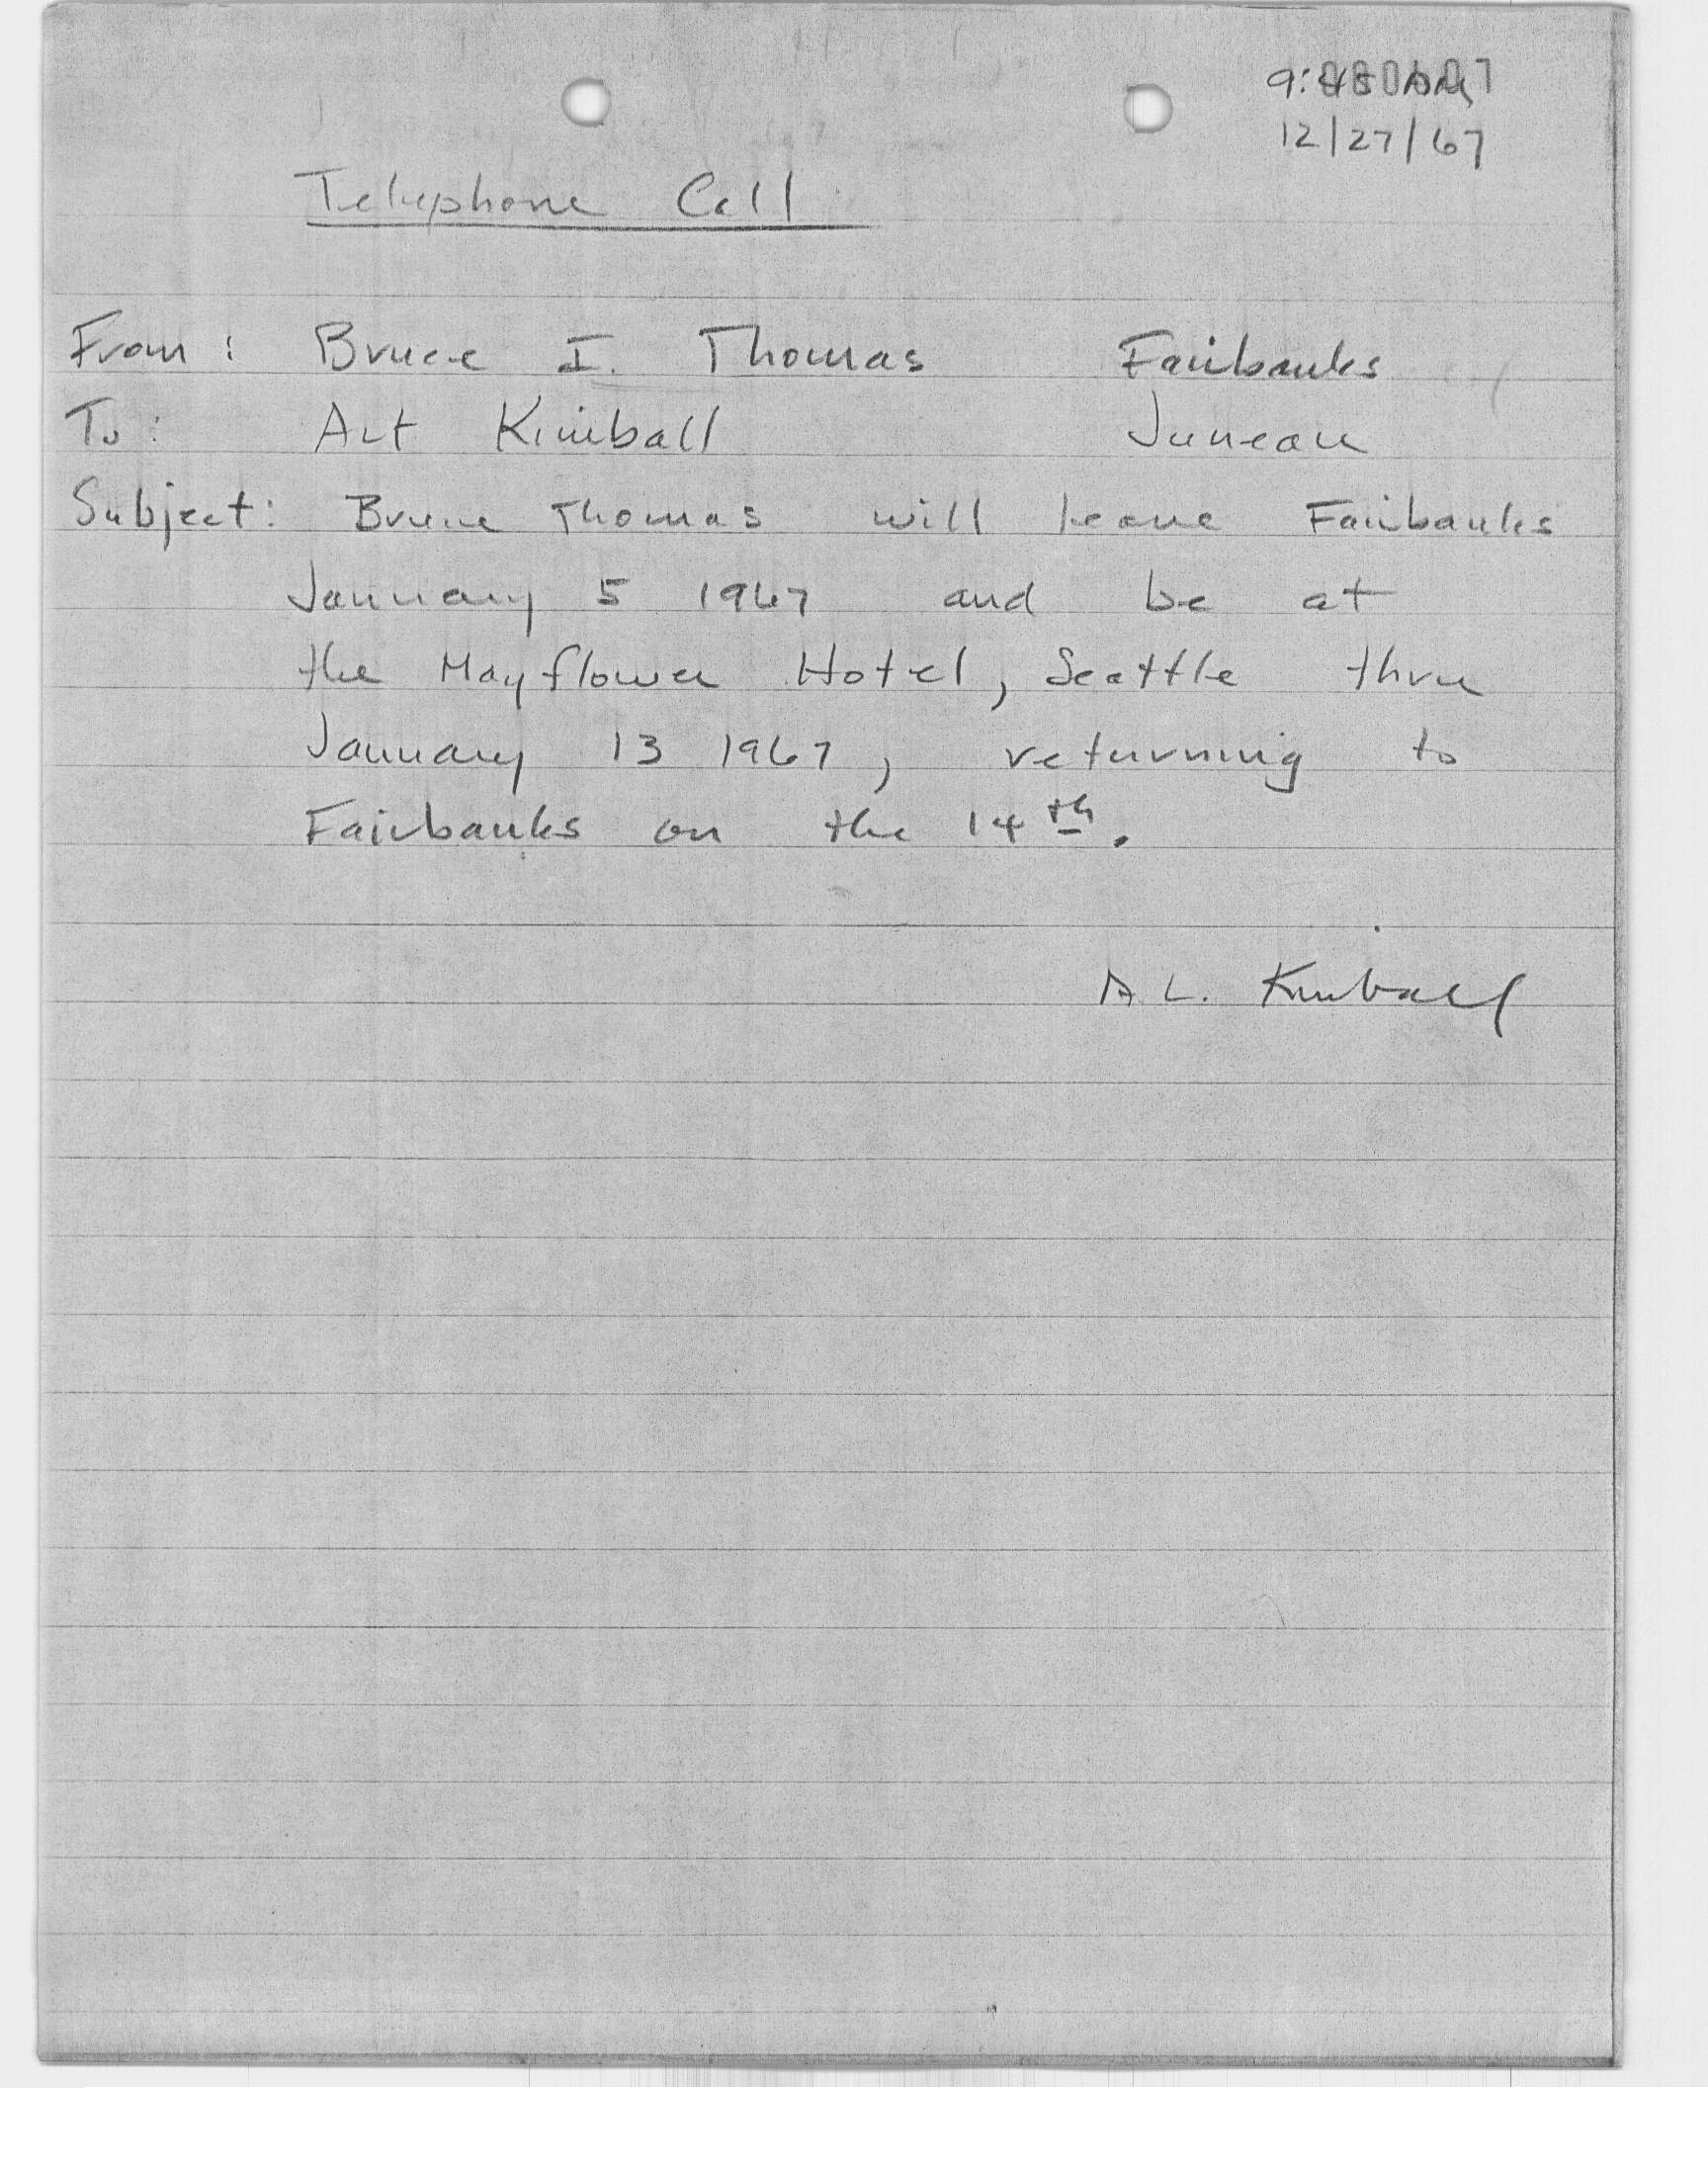 9:45 AM
12/27/67
Telephone Call
From: Bruce I. Thomas Fairbanks
To: Art Kimball Juneau
Subject: Bruce Thomas will leave Fairbanks
January 5 1967 and be at
the Mayflower Hotel, Seattle thru
January 13 1967, returning to
Fairbanks on the 14th.
A L. Kimball